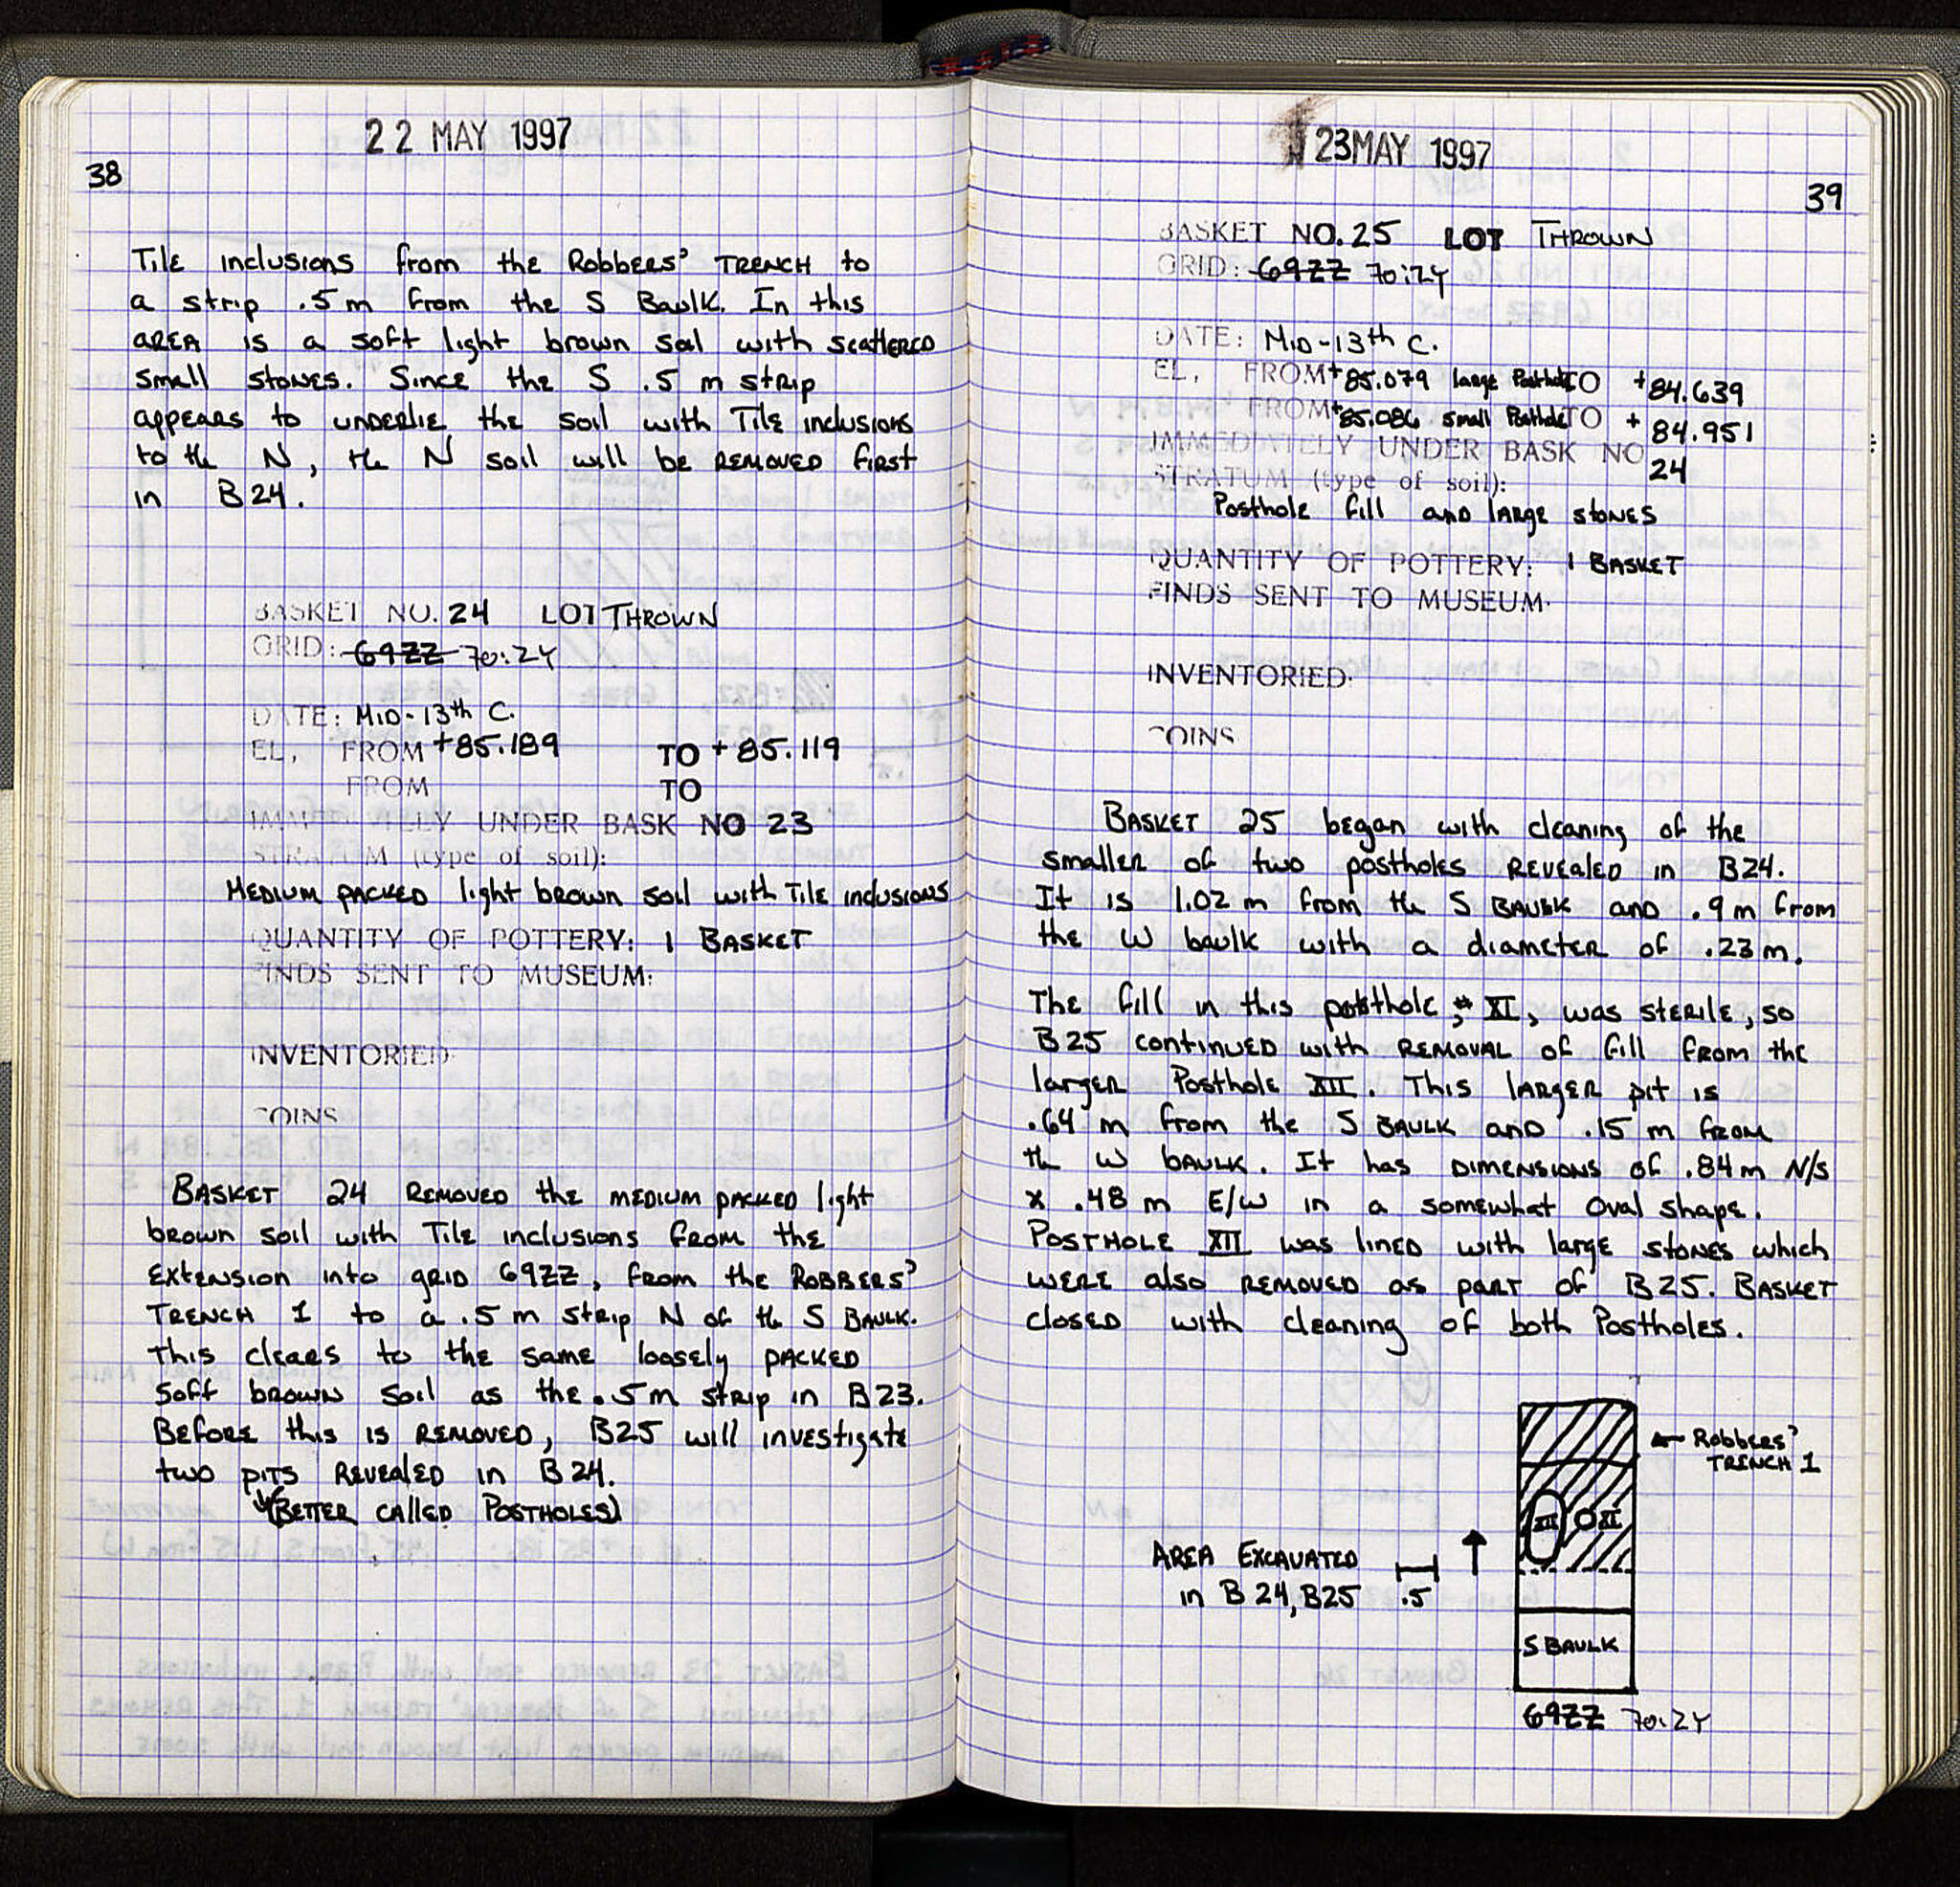 22 MAY 1997
38
Tile inclusions from the Robbers' TRENCH to
a strip .5 m from the S Baulk. In this
area is a soft light brown soil with scattered
small stones. Since the S .5 m strip
appears to underlie the soil with Tile inclusions
to the N, the N soil will be removed first
in B24.
BASKET NO. 24 LOT THROWN
GRID: 69ZZ 70:ZY
DATE: Mid-13th C.
EL, FROM +85.189 TO +85.119
FROM TO
UNDER BASK NO 23
STRATUM (type of soil):
Medium packed light brown soil with Tile inclusions
QUANTITY OF POTTERY: 1 BASKET
FINDS SENT TO MUSEUM:
INVENTORIED:
COINS
Basket 24 removed the medium packed light
brown soil with Tile inclusions from the
extension into grid 69ZZ, from the Robbers'
Trench 1 to a .5 m strip N of the S Baulk.
This clears to the same loosely packed
soft brown soil as the .5m strip in B23.
Before this is removed, B25 will investigate
two pits revealed in B24.
(Better called Postholes)
23 MAY 1997
39
BASKET NO. 25 LOT THROWN
GRID: 69ZZ 70:ZY
DATE: Mid-13th C.
EL, FROM +85.079 large Posthole TO +84.639
FROM +85.086 small Posthole TO +84.951
IMMEDIATELY UNDER BASK NO 24
STRATUM (type of soil):
Posthole fill and large stones
QUANTITY OF POTTERY: 1 BASKET
FINDS SENT TO MUSEUM:
INVENTORIED:
COINS
Basket 25 began with cleaning of the
smaller of two postholes revealed in B24.
It is 1.02 m from the S Baulk and .9 m from
the W baulk with a diameter of .23 m.
The fill in this posthole, # XI, was sterile, so
B25 continued with removal of fill from the
larger Posthole XII. This larger pit is
.64 m from the S Baulk and .15 m from
the W baulk. It has dimensions of .84 m N/S
x .48 m E/W in a somewhat oval shape.
Posthole XII was lined with large stones which
were also removed as part of B25. Basket
closed with cleaning of both Postholes.
Robbers'
TRENCH 1
XII XI
Area Excavated
in B 24, B25 .5
S BAULK
69ZZ 70:ZY